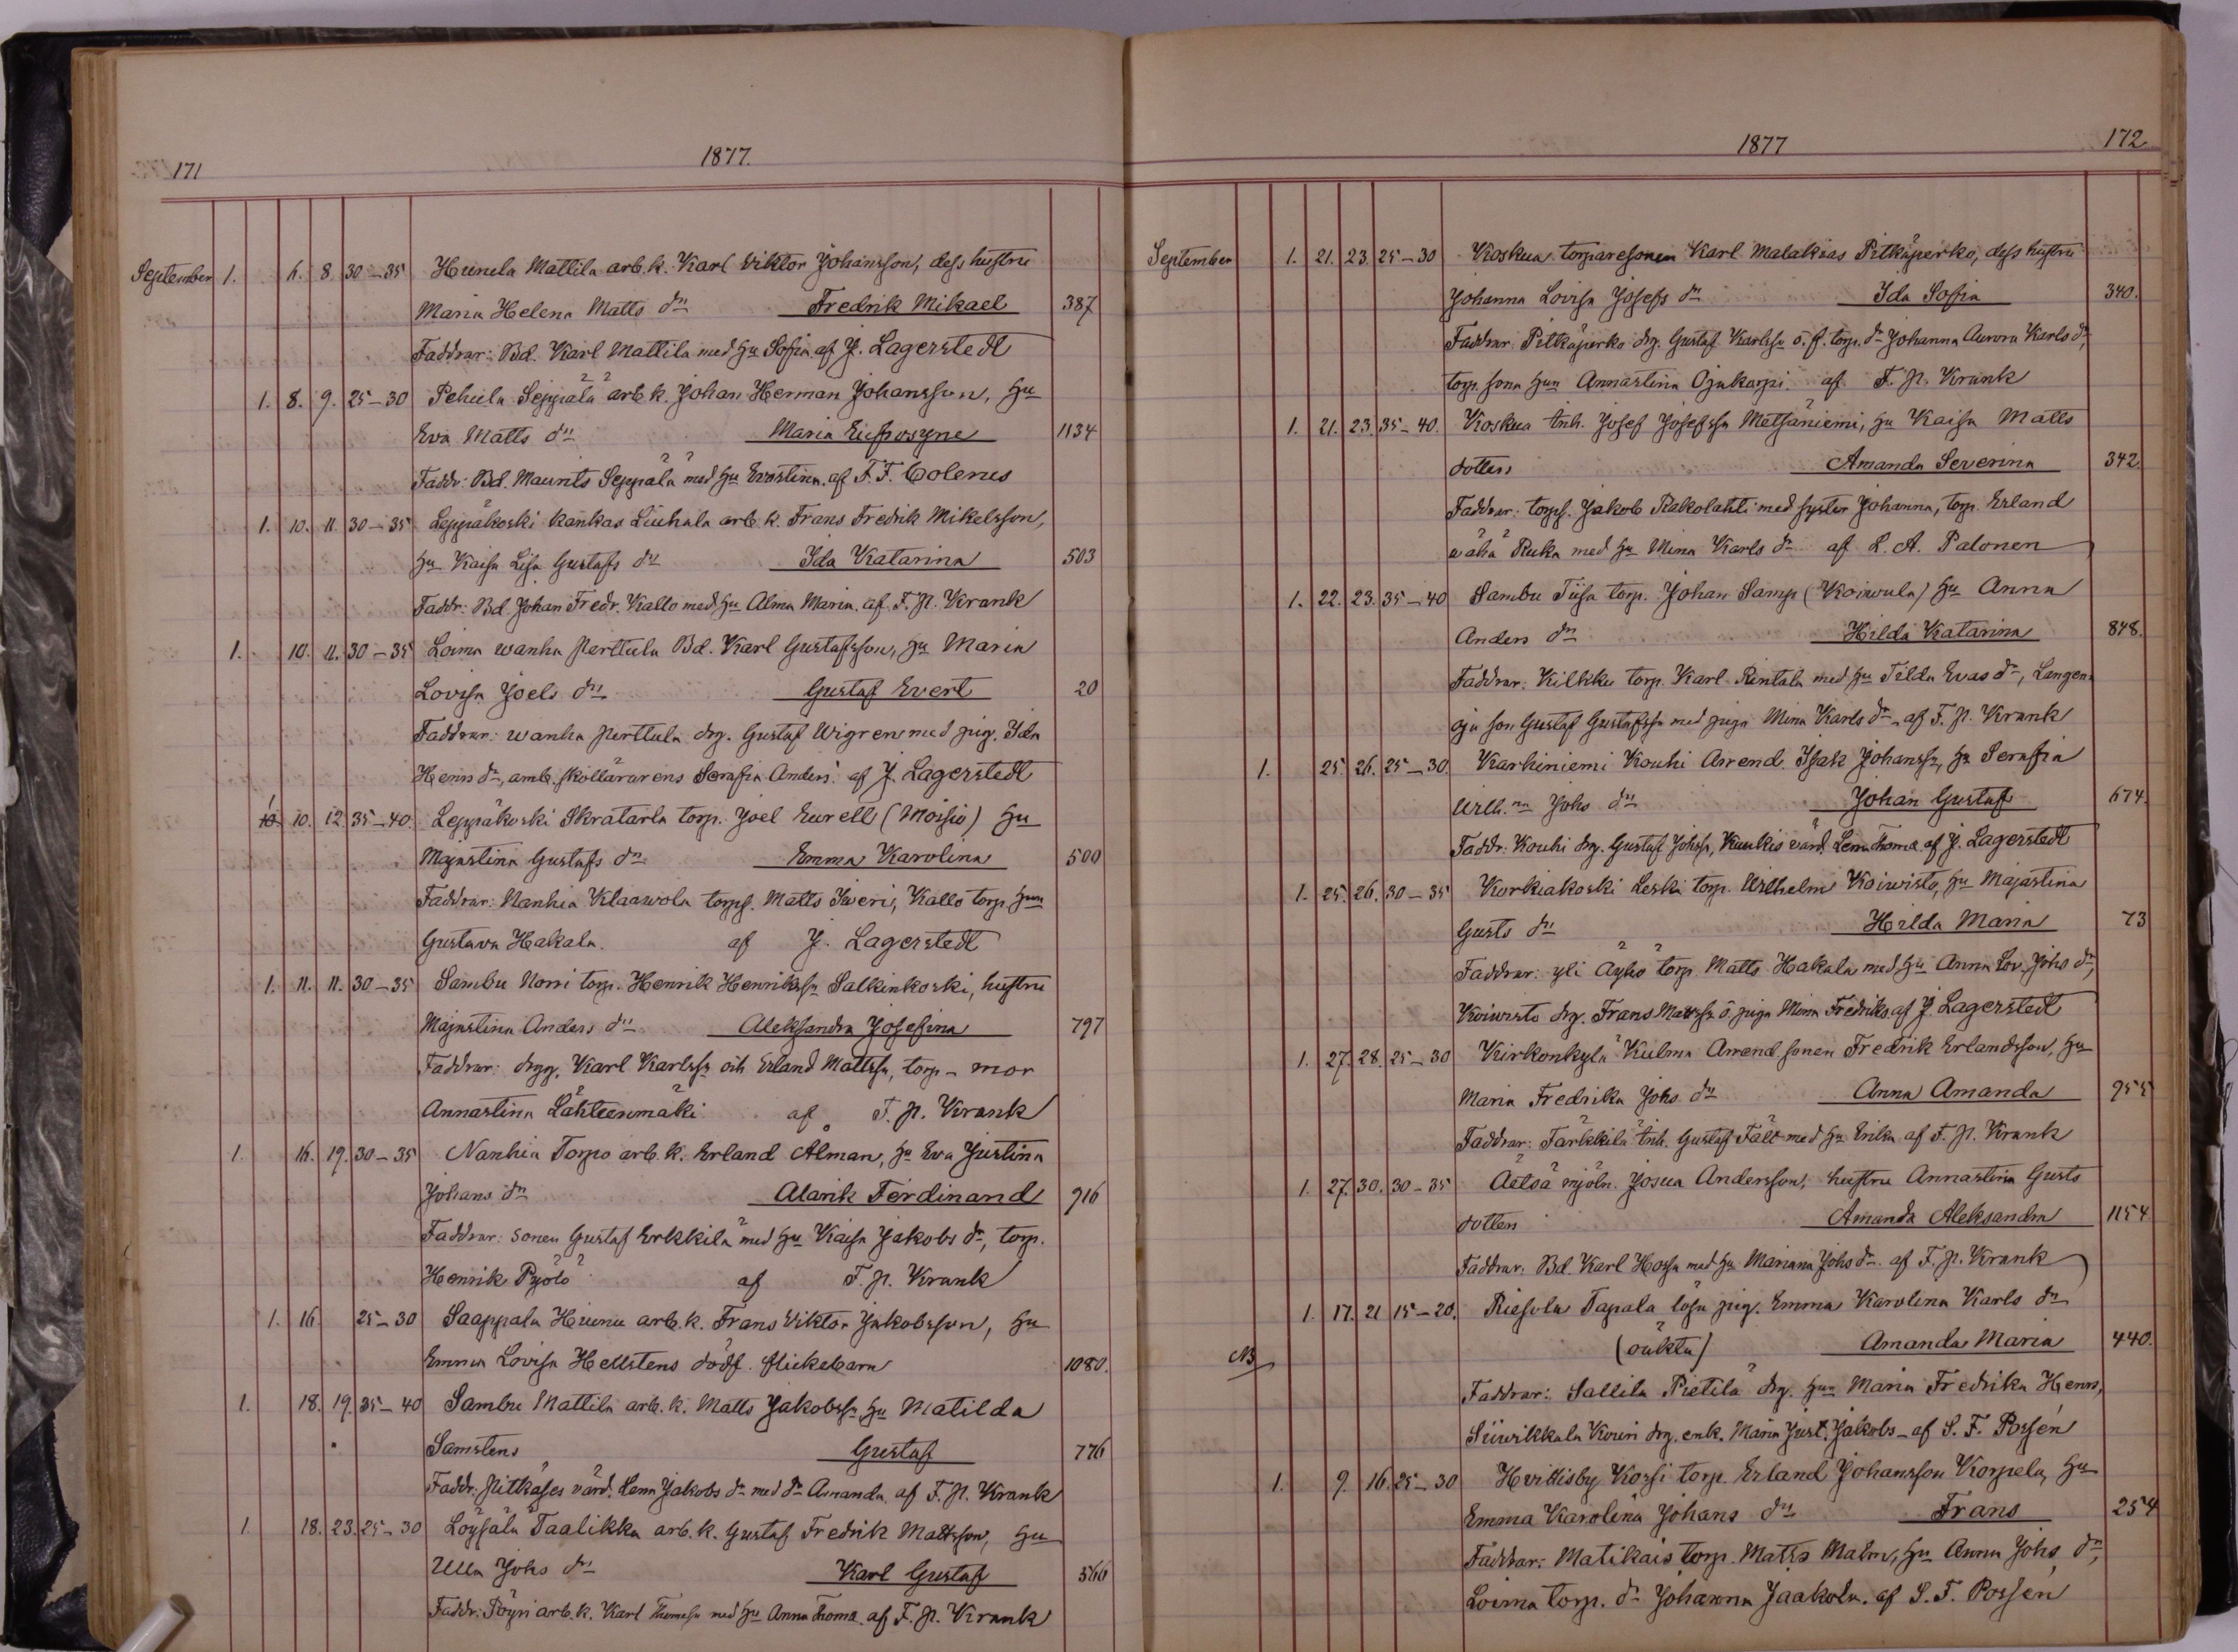 171
1877.
September 1. 6. 8. 30–35 Hunela Mattila arb.k. Karl Viktor Johansson, dess hustru
Maria Helena Matts dr Fredrik Mikael 387
Faddrar: Bd. Karl Mattila med hu Sofia. af J. Lagerstedt
1. 8. 9. 25–30 Pehula Seppälä arb.k. Johan Herman Johansson, hu
Eva Matts dr Maria Eufrosyne 1134
Faddr: Bd. Maurits Seppälä med hu Evastina. af F. F. Colenus
1. 10. 11. 30–35 Leppäkoski Kankas Liuhala arb.k. Frans Fredrik Mikelsson,
hu Kaisa Lisa Gustafs dr Ida Katarina 503
Faddr: Bd. Johan Fredr. Kallo med hu Alma Maria. af F. P. Krank
1. 10. 11. 30–35 Loima wanha Perttula Bd. Karl Gustafsson, hu Maria
Lovisa Joels dr Gustaf Evert 20
Faddrar: wanha Perttula drg. Gustaf Wigren med pig. Ida
Henrs dr, amb. skollärarens Serafia Anders. af J. Lagerstedt
1 10. 12. 35–40. Leppäkoski Skratarla torp. Joel Eurell (Moisio) hu
Majastina Gustafs dr Emma Karolina 500
Faddrar: Nanhia Klaawola torps. Matts Iweri, Kallo torp. hun
Gustava Hakala. af J. Lagerstedt
1. 11. 11. 30–35 Sambu Norri torp. Henrik Henrikssn Salkinkoski, hustru
Majastina Anders dr Aleksandra Josefina 797
Faddrar: drgg. Karl Karlssn och Erland Mattssn, torp–mor
Annastina Lähteenmäki af F. P. Krank
1. 16. 19. 30–35 Nanhia Torpo arb.k. Erland Ålman, hu Eva Justina
Johans dr Alarik Ferdinand 916
Faddrar: sonen Gustaf Erkkilä med hu Kaisa Jakobs dr, torp.
Henrik Pyölö af F. P. Krank
1. 16. 25–30 Saappala Hiunu arb.k. Frans Viktor Jakobsson, hu
Emma Lovisa Hellstens dödf. flickebarn 1080.
1. 18. 19. 35–40 Sambu Mattila arb.k. Matts Jakobssn hu Matilda
Samstens Gustaf 776
Faddr: Pitkäses värd. Lena Jakobs dr med dr Amanda. af F. P. Krank
1 18. 23. 25–30 Löysälä Taalikka arb.k. Gustaf Fredrik Mattsson, hu
Ulla Johs dr Karl Gustaf 566
Faddr: Pöyri arb.k. Karl Thomassn med hu Anna Thoma. af F. P. Krank
1877
172
September 1. 21. 23. 25–30 Koskua torparesonen Karl Malakias Pitkäperko, dess hustru
Johanna Lovisa Josefs dr Ida Sofia 340.
Faddrar: Pitkäperko drg. Gustaf Karlssn o. f. torp. dr Johanna Aurora Karls dr,
torp. sona hun Annastina Ojakorpi. af F. P. Krank
1. 21. 23. 35–40. Koskua inh. Josef Josefssn Metsäniemi, hu Kaisa Matts
dotter Amanda Severina 342.
Faddrar: torps. Jakob Rakolahti med syster Johanna, torp. Erland
wähä Ruka med hu Mina Karls dr af L. A. Palonen
1. 22. 23. 35–40 Sambu Tiisa torp. Johan Samp (Koiwula) hu Anna
Anders dr Hilda Katarina 848.
Faddrar: Kilkku torp. Karl Rintala med hu Tilda Evas dr, Langen
oja son Gustaf Gustafssn med piga Mina Karls dr af F. P. Krank
1. 25. 26. 25–30. Karhiniemi Kouhi Arrend. Isak Johanssn, hu Serafia
Wilh.na Johs dr Johan Gustaf 674.
Faddr: Kouhi drg. Gustaf Johssn, Kuukis värd. Lena Thoma. af J. Lagerstedt
1. 25. 26. 30–35 Korkiakoski Leski torp. Wilhelm Koiwisto, hu Majastina
Gusts dr Hilda Maria 73
Faddrar: yli Äyhö torp. Matts Hakala med hu Anna Lov. Johs dr,
Koiwisto drg. Frans Mattssn o. piga Mina Fredriks. af J. Lagerstedt
1. 27. 28. 25–30 Kirkonkylä Kulma Arrend. sonen Fredrik Erlandsson, hu
Maria Fredrika Johs dr Anna Amanda 955
Faddrar: Tärkkilä inh. Gustaf Fält med hu Erika af F. P. Krank
1. 27. 30. 30–35 Äetsä mjöln. Josua Andersson, hustru Annastina Gusts
dotter Amanda Aleksandra 1154
Faddrar: Bd. Karl Hossa med hu Mariana Johs dr. af F. P. Krank
1. 17. 21 15–20. Riesola Tapala lösa pig. Emma Karolina Karls dr
NB (oäkta) Amanda Maria 440.
Faddrar: Sallila Pietilä drg. hun Maria Fredrika Henrs,
Siiwikkala Kouri drg. enk. Maria Just. Jakobs – af S. F. Porsén
1. 9. 16. 25–30 Hvittisby Korsi torp. Erland Johansson Korpela, hu
Emma Karolina Johans dr Frans 254
Faddrar: Matikais torp. Matts Malm, hu Anna Johs dr,
Loima torp. dr Johanna Jaakola. af S. F. Porsén